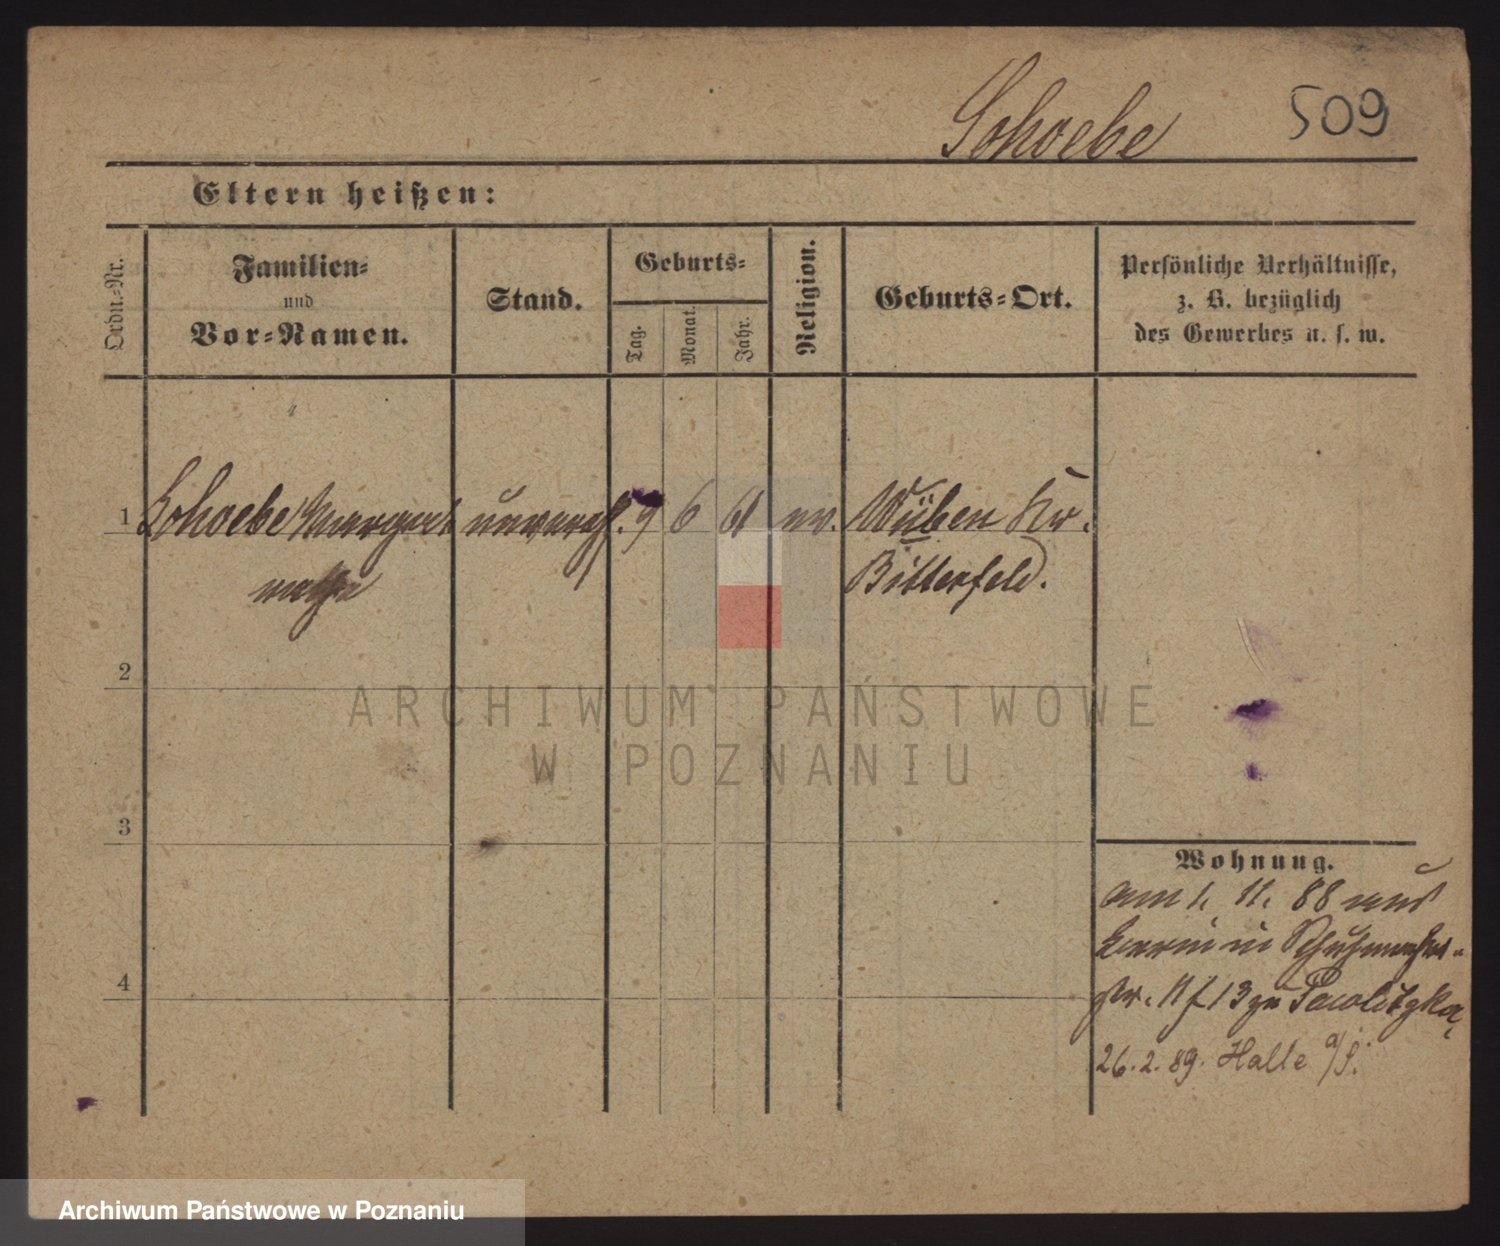 Schoebe 509
Eltern heißen:
Ordn.-Nr.
Familien-
und
Vor-Namen.
Stand.
Geburts-
Tag.
Monat.
Jahr.
Religion.
Geburts-Ort.
Persönliche Verhältnisse,
z. B. bezüglich
des Gewerbes u. s. w.
1 Schoebe 9 6 61 ev. Kr.
Bitterfeld.
2
3
4
Wohnung.
am 1. 11. 88 aus
Schuhmacher-
str. 13 zu
26. 2. 89. Halle a/S.
ARCHIWUM PAŃSTWOWE
W POZNANIU
Archiwum Państwowe w Poznaniu